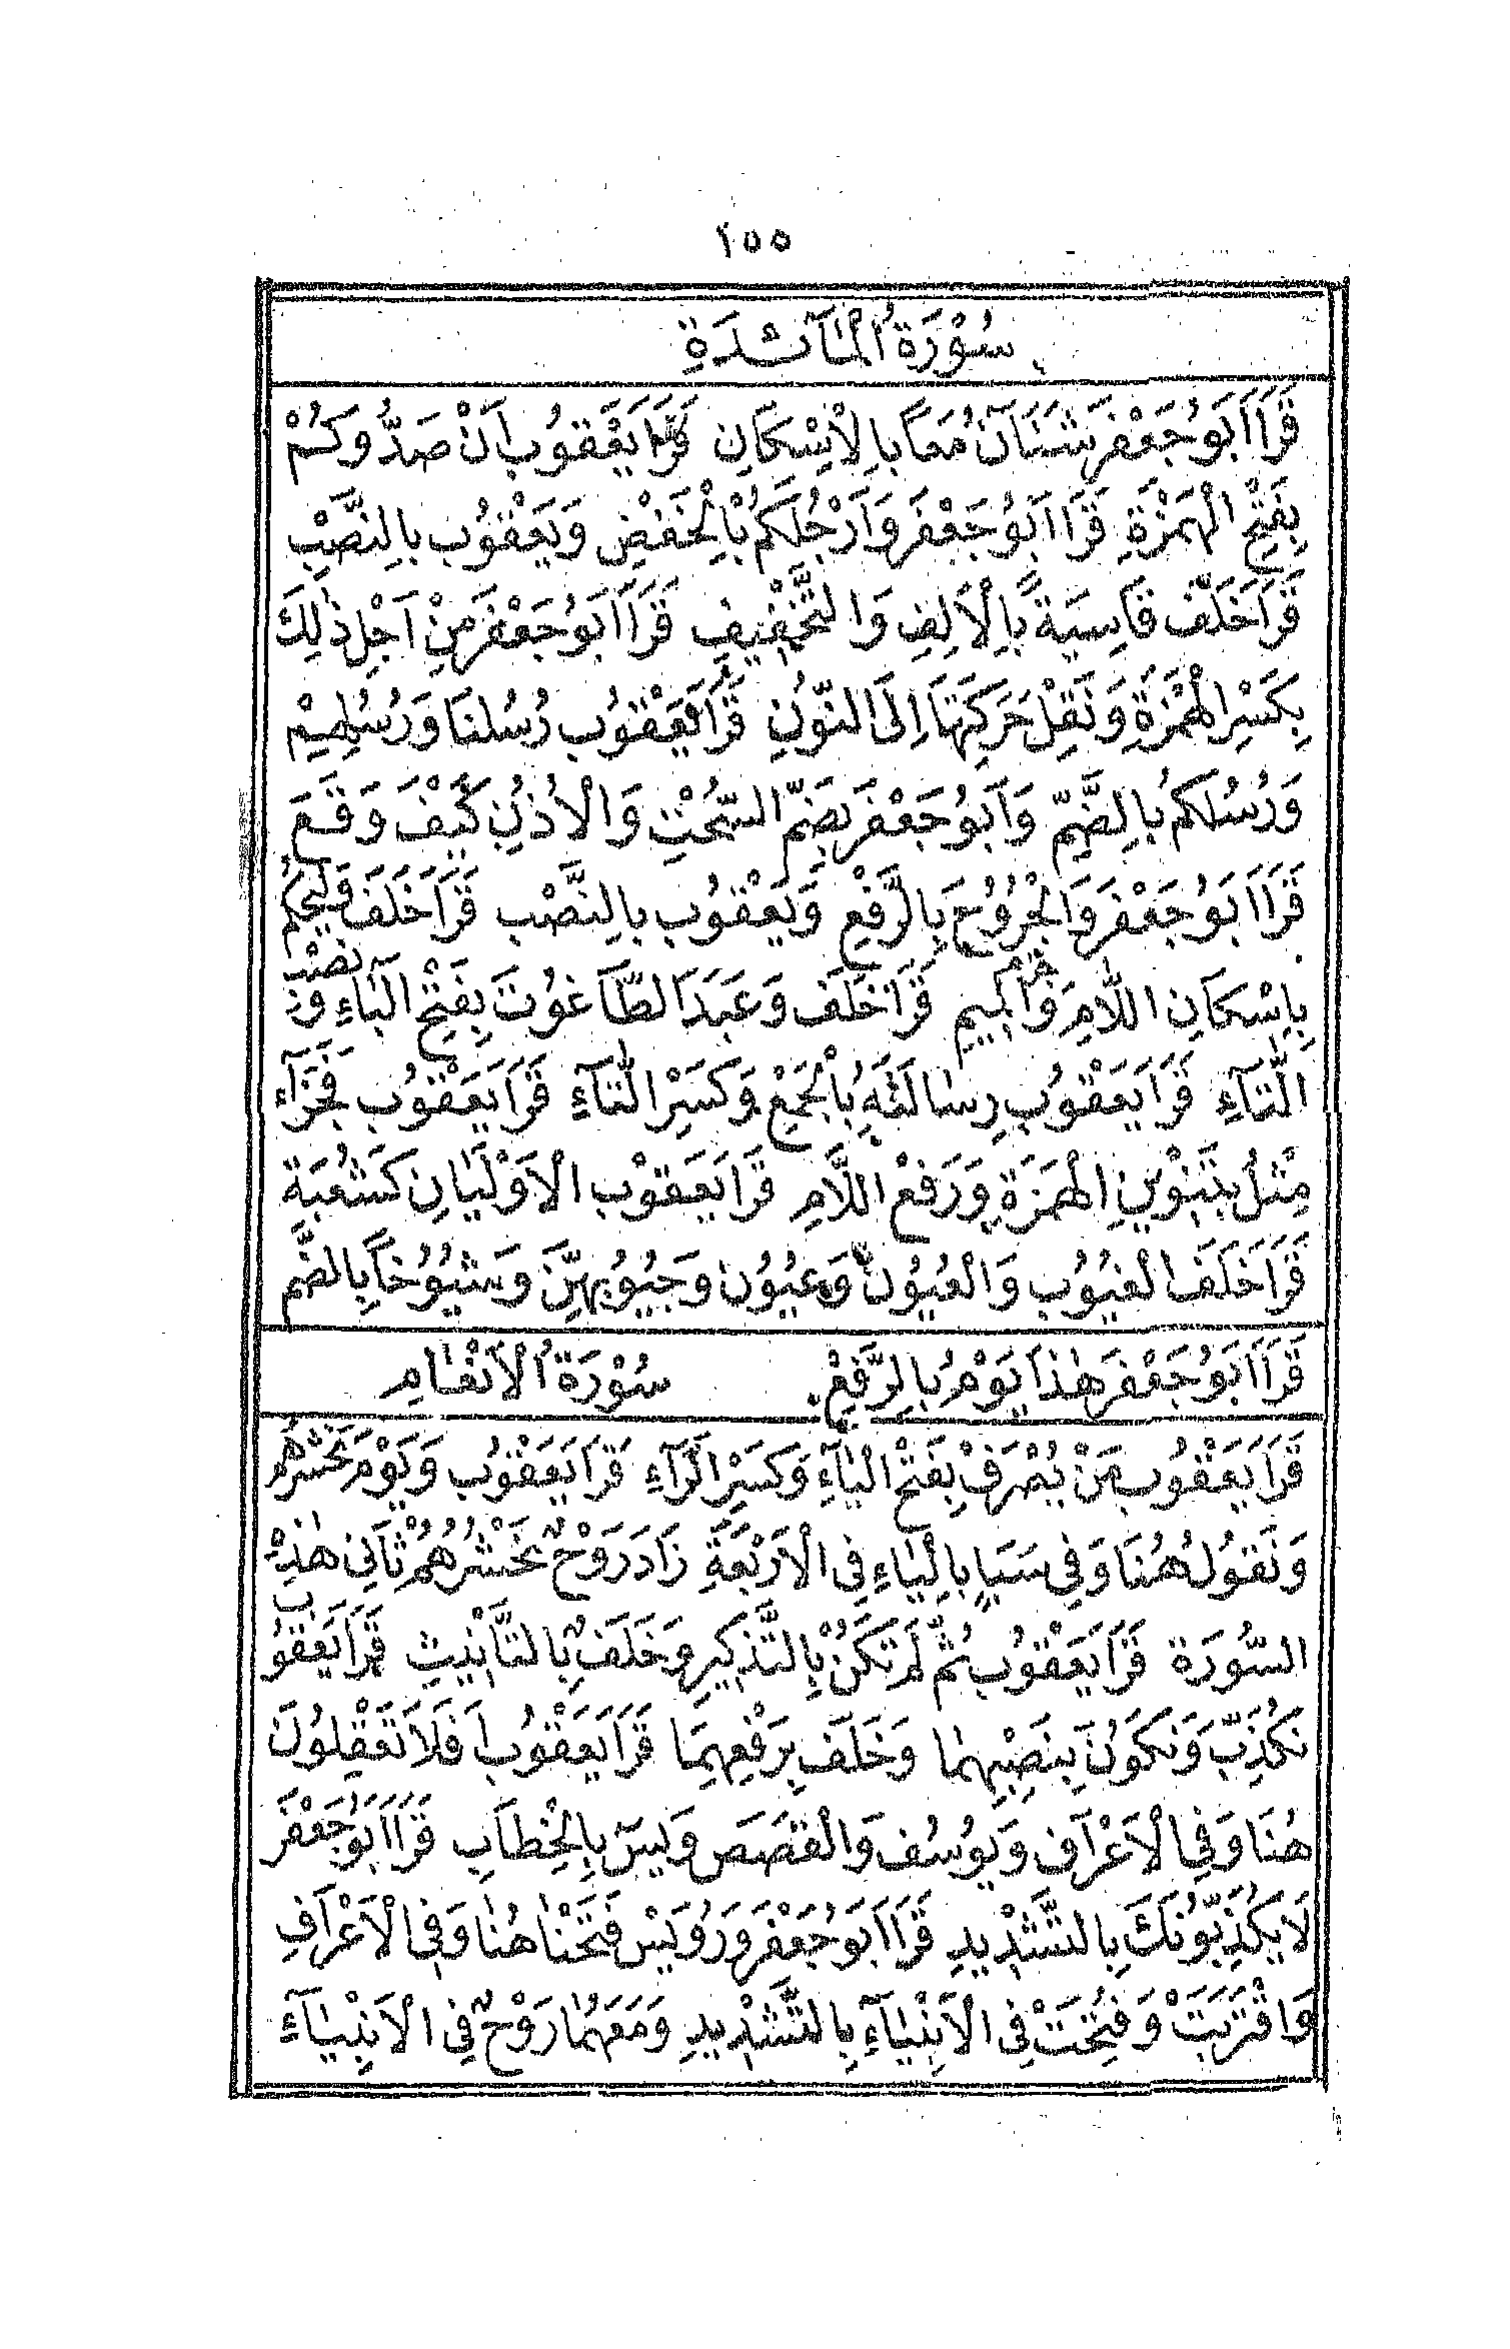 ٢٥٥
سُوْرَةُ الْمَآئِدَةِ
قَرَأَ اَبُوْ جَعْفَرَ شَنَآنُ مَعًا بِالْاِسْكَانِ قَرَأَ يَعْقُوْبُ اَنْ صَدُّوكُمْ
بِفَتْحِ الْهَمْزَةِ قَرَأَ اَبُوْ جَعْفَرَ وَاَرْجُلَكُمْ بِالْخَفْضِ وَيَعْقُوْبُ بِالنَّصْبِ
قَرَأَ خَلَفٌ قَاسِيَةً بِالْاَلِفِ وَالتَّخْفِيفِ قَرَأَ اَبُوْ جَعْفَرَ مِنْ اَجْلِ ذٰلِكَ
بِكَسْرِ الْهَمْزَةِ وَنَقْلِ حَرَكَتِهَا اِلَى النُّوْنِ قَرَأَ يَعْقُوْبُ رُسُلُنَا وَرُسُلُهُمْ
وَرُسُلُكُمْ بِالضَّمِّ وَاَبُوْ جَعْفَرَ بِضَمِّ السُّحْتِ وَالْاُذُنِ كَيْفَ وَقَعَ
قَرَأَ اَبُوْ جَعْفَرَ وَالْجُرُوْحَ بِالرَّفْعِ وَيَعْقُوْبُ بِالنَّصْبِ قَرَأَ خَلَفٌ وَلْيَحْكُمْ
بِاِسْكَانِ اللَّامِ وَجَزْمِ الْمِيمِ قَرَأَ خَلَفٌ وَعَبَدَ الطَّاغُوْتَ بِفَتْحِ الْبَاءِ وَنَصْبِ
التَّآءِ قَرَأَ يَعْقُوْبُ رِسَالَتَهُ بِالْجَمْعِ وَكَسْرِ التَّآءِ قَرَأَ يَعْقُوْبُ فَجَزَآءٌ
مِثْلُ بِتَنْوِيْنِ الْهَمْزَةِ وَرَفْعِ اللَّامِ قَرَأَ يَعْقُوْبُ الْاَوْلَيَانِ كَشُعْبَةَ
قَرَأَ خَلَفٌ الْغُيُوْبِ وَالْعُيُوْنَ وَعُيُوْنَ وَجُيُوْبِهِنَّ وَشُيُوْخًا بِالضَّمِّ
قَرَأَ اَبُوْ جَعْفَرَ هٰذَا يَوْمُ بِالرَّفْعِ. سُوْرَةُ الْاَنْعَامِ
قَرَأَ يَعْقُوْبُ مَنْ يُصْرَفْ بِفَتْحِ الْيَآءِ وَكَسْرِ الرَّآءِ قَرَأَ يَعْقُوْبُ وَيَوْمَ نَحْشُرُهُمْ
وَنَقُوْلُ هُنَا وَفِي سَبَإٍ بِالْيَاءِ فِى الْاَرْبَعَةِ زَادَ رَوْحٌ نَحْشُرُهُمْ ثَانِيَ هٰذِهِ
السُّوْرَةِ قَرَأَ يَعْقُوْبُ ثُمَّ لَمْ تَكُنْ بِالتَّذْكِيرِ وَخَلَفٌ بِالتَّأْنِيثِ قَرَأَ يَعْقُوْبُ
نُكَذِّبَ وَنَكُوْنَ بِنَصْبِهِمَا وَخَلَفٌ بِرَفْعِهِمَا قَرَأَ يَعْقُوْبُ اَفَلَا تَعْقِلُوْنَ
هُنَا وَفِي الْاَعْرَافِ وَيُوسُفَ وَالْقَصَصِ وَيٰسٓ بِالْخِطَابِ قَرَأَ اَبُوْ جَعْفَرَ
لَا يُكَذِّبُوْنَكَ بِالتَّشْدِيدِ قَرَأَ اَبُوْ جَعْفَرَ وَرُوَيْسٌ فَتَحْنَا هُنَا وَفِي الْاَعْرَافِ
وَاقْتَرَبَتْ وَفُتِحَتْ فِى الْاَنْبِيَآءِ بِالتَّشْدِيدِ وَمَعَهُمَا رَوْحٌ فِى الْاَنْبِيَآءِ